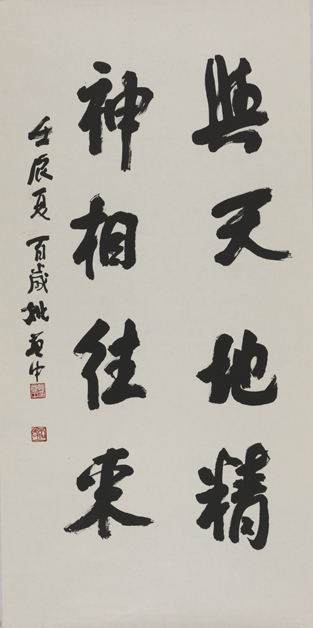 與天地精
神相往來
壬辰夏百歲姚奠中